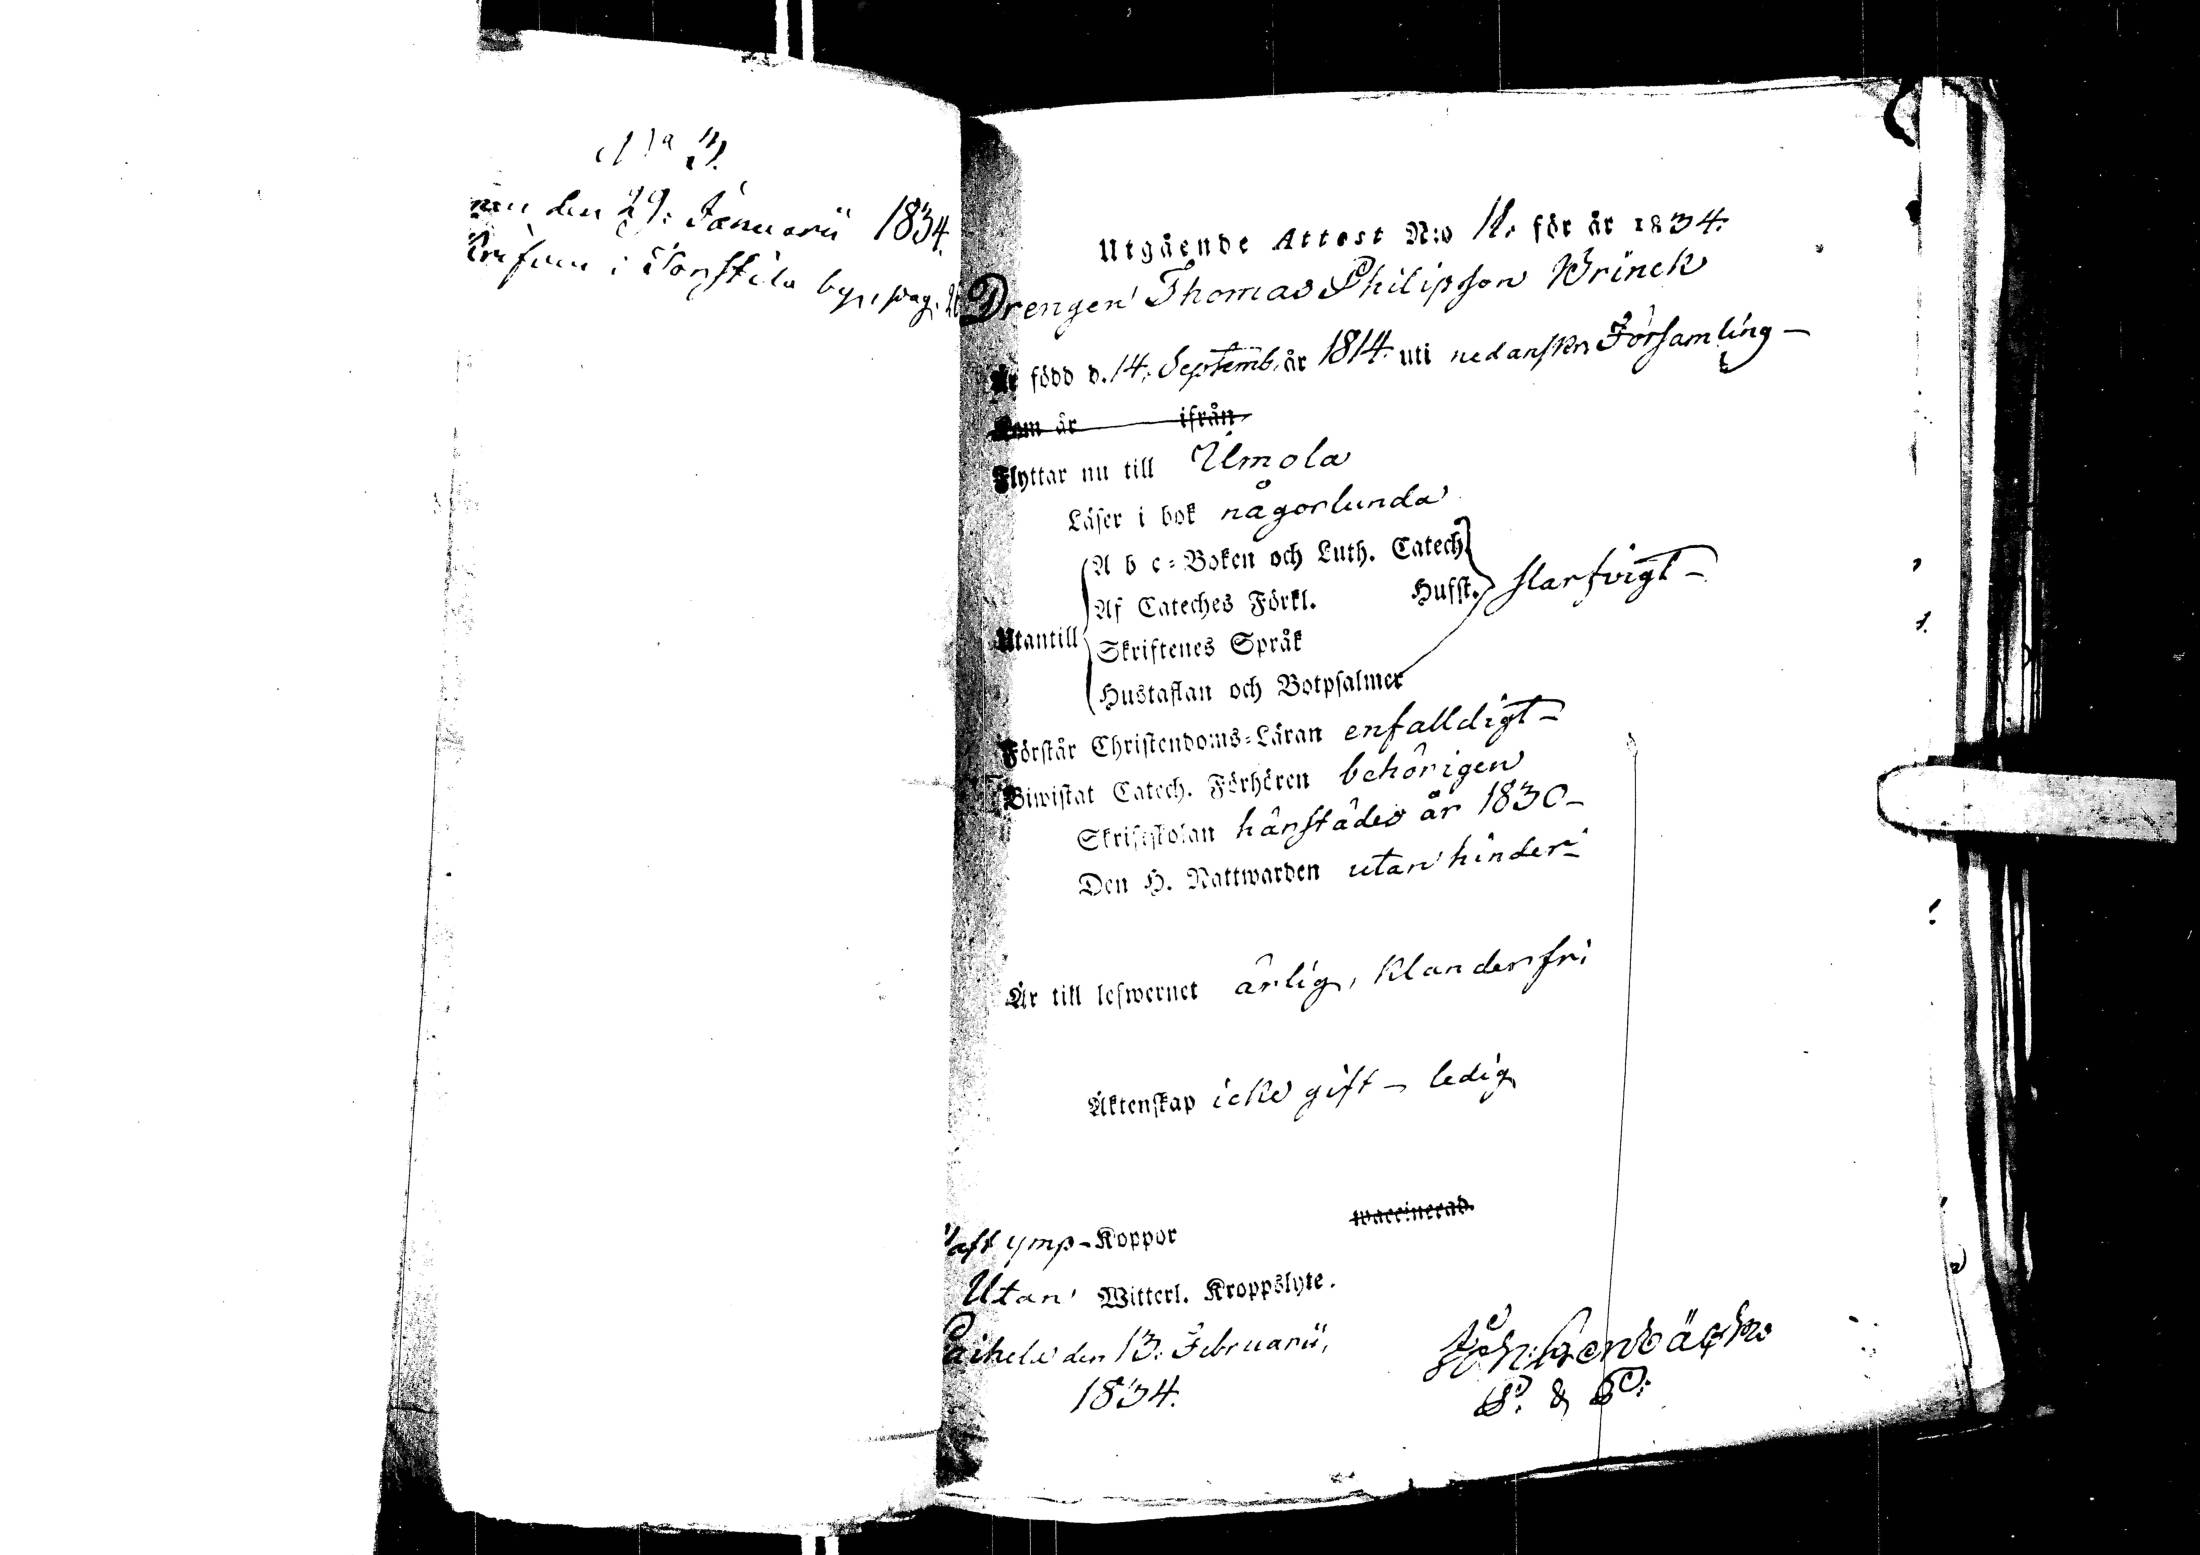 N:o 3.
den 29: Januarii 1834.
i Torstila by, pag.
Utgående Attest N:o 11. för år 1834.
Drengen Thomas Philipsson Brinck
Är född d. 14. Septemb. år 1814. uti nedanskn Församling —
Kom år ifrån
Flyttar nu till Elimola
Läser i bok någorlunda
A b c-Boken och Luth. Catech.
Af Cateches Förkl. Hufst. slarfvigt —
Utantill
Skriftenes Språk
Hustaflan och Botpsalmer
Förstår Christendoms-Läran enfalldigt —
Biwistat Catech. Förhören behörigen
Skriftskolan härstädes år 1830 —
Den H. Nattwarden utan hinder —
Är till lefwernet ärlig, klanderfri
Äktenskap icke gift — ledig
Haft ymp-Koppor waccinerad.
Utan Witterl. Kroppslyte.
den 13. Februarii,
1834.
P. & P.